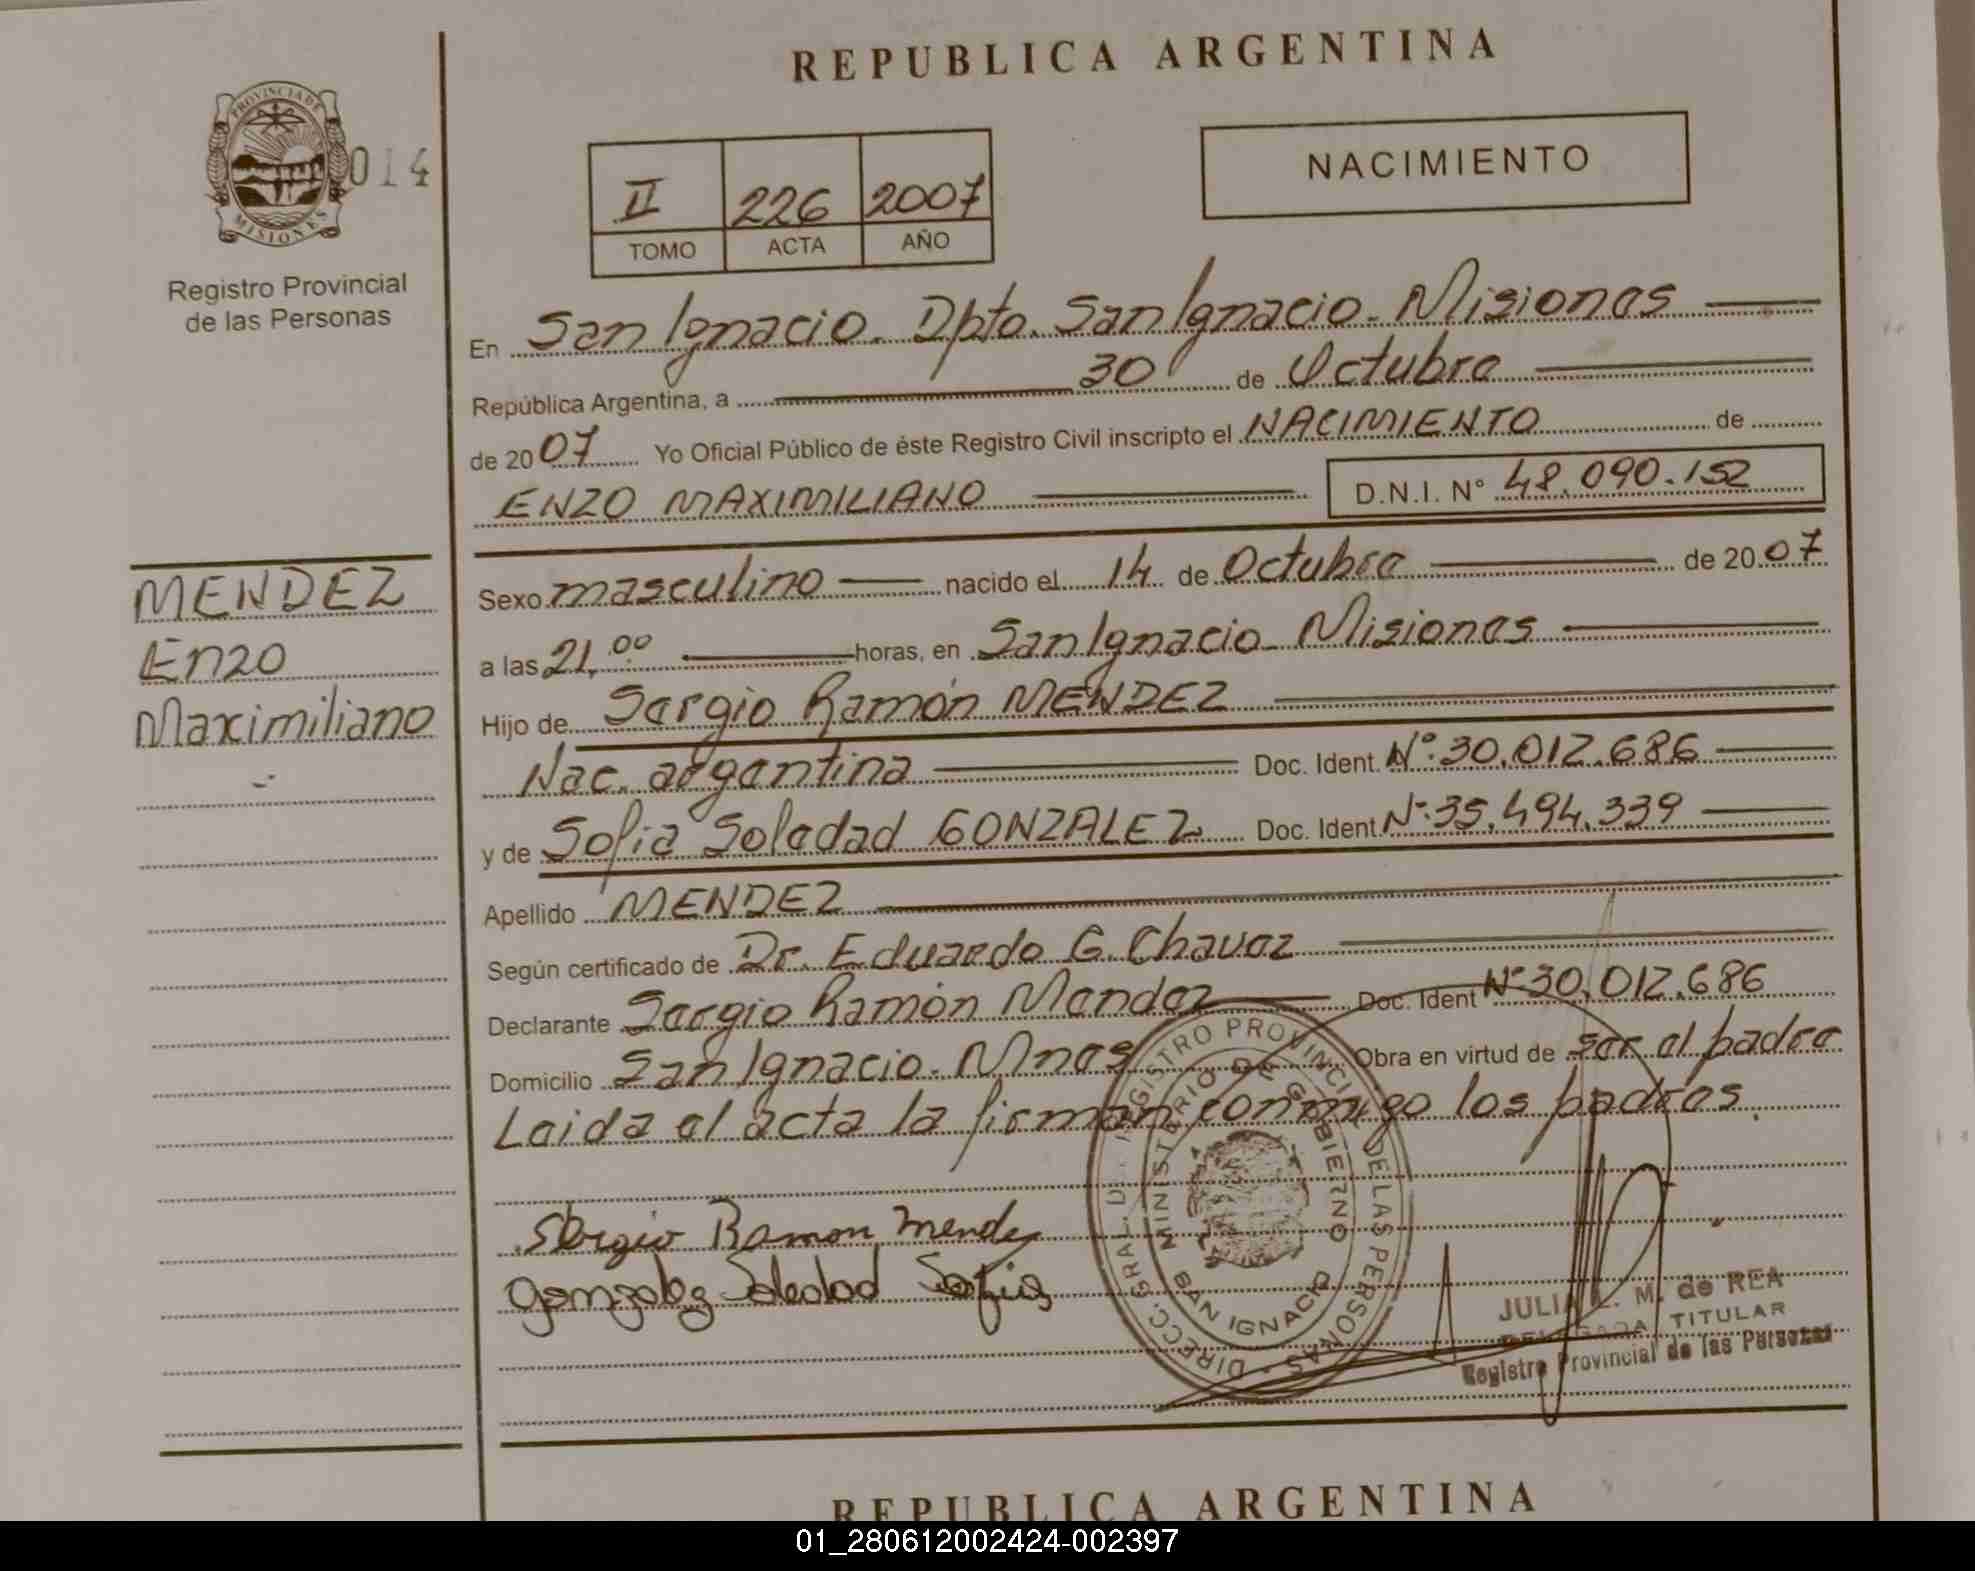 REPUBLICA ARGENTINA
PROVINCIA DE
MISIONES
014
Registro Provincial
de las Personas
II 226 2007
TOMO ACTA AÑO
NACIMIENTO
En San Ignacio. Dpto. San Ignacio. Misiones
República Argentina, a 30 de Octubre
de 2007 Yo Oficial Público de éste Registro Civil inscripto el NACIMIENTO de
ENZO MAXIMILIANO D.N.I. Nº 48.090.152
MENDEZ
Enzo
Maximiliano
Sexo masculino nacido el 14 de Octubre de 2007
a las 21.00 horas, en San Ignacio Misiones
Hijo de Sergio Ramón MENDEZ
Nac. argentina Doc. Ident. Nº 30.012.686
y de Sofia Soledad GONZALEZ Doc. Ident Nº 35.494.339
Apellido MENDEZ
Según certificado de Dr. Eduardo G. Chavez
Declarante Sergio Ramón Mendez Doc. Ident Nº 30.012.686
Domicilio San Ignacio. Mnes Obra en virtud de ser el padre
Leida el acta la firman conmigo los padres.
Sergio Ramon Mendez
Gonzalez Soledad Sofia
DIRECC. GRAL. REGISTRO PROVINCIAL DE LAS PERSONAS
MINISTERIO DE GOBIERNO
SAN IGNACIO
JULIA L. M. de REA
DELEGADA TITULAR
Registro Provincial de las Personas
REPUBLICA ARGENTINA
01_280612002424-002397